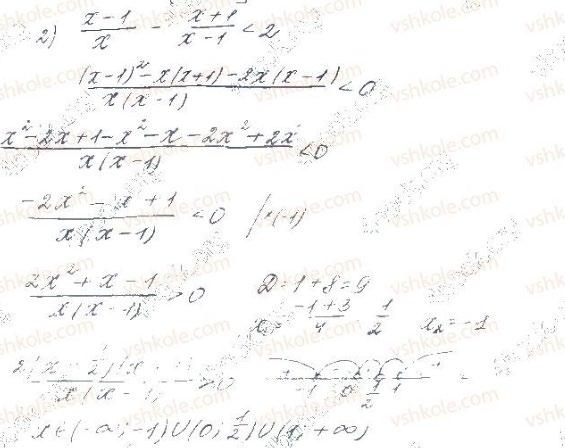 2) (x-1)/x - (x+1)/(x-1) < 2
((x-1)² - x(x+1) - 2x(x-1))/(x(x-1)) < 0
(x² - 2x + 1 - x² - x - 2x² + 2x)/(x(x-1)) < 0
(-2x² - x + 1)/(x(x-1)) < 0 /·(-1)
(2x² + x - 1)/(x(x-1)) > 0 D = 1 + 8 = 9
x = (-1+3)/4 1/2 x₂ = -1
-1 0 1/2 1
x ∈ (-∞; -1) ∪ (0; 1/2) ∪ (1; +∞)
vshkole.com